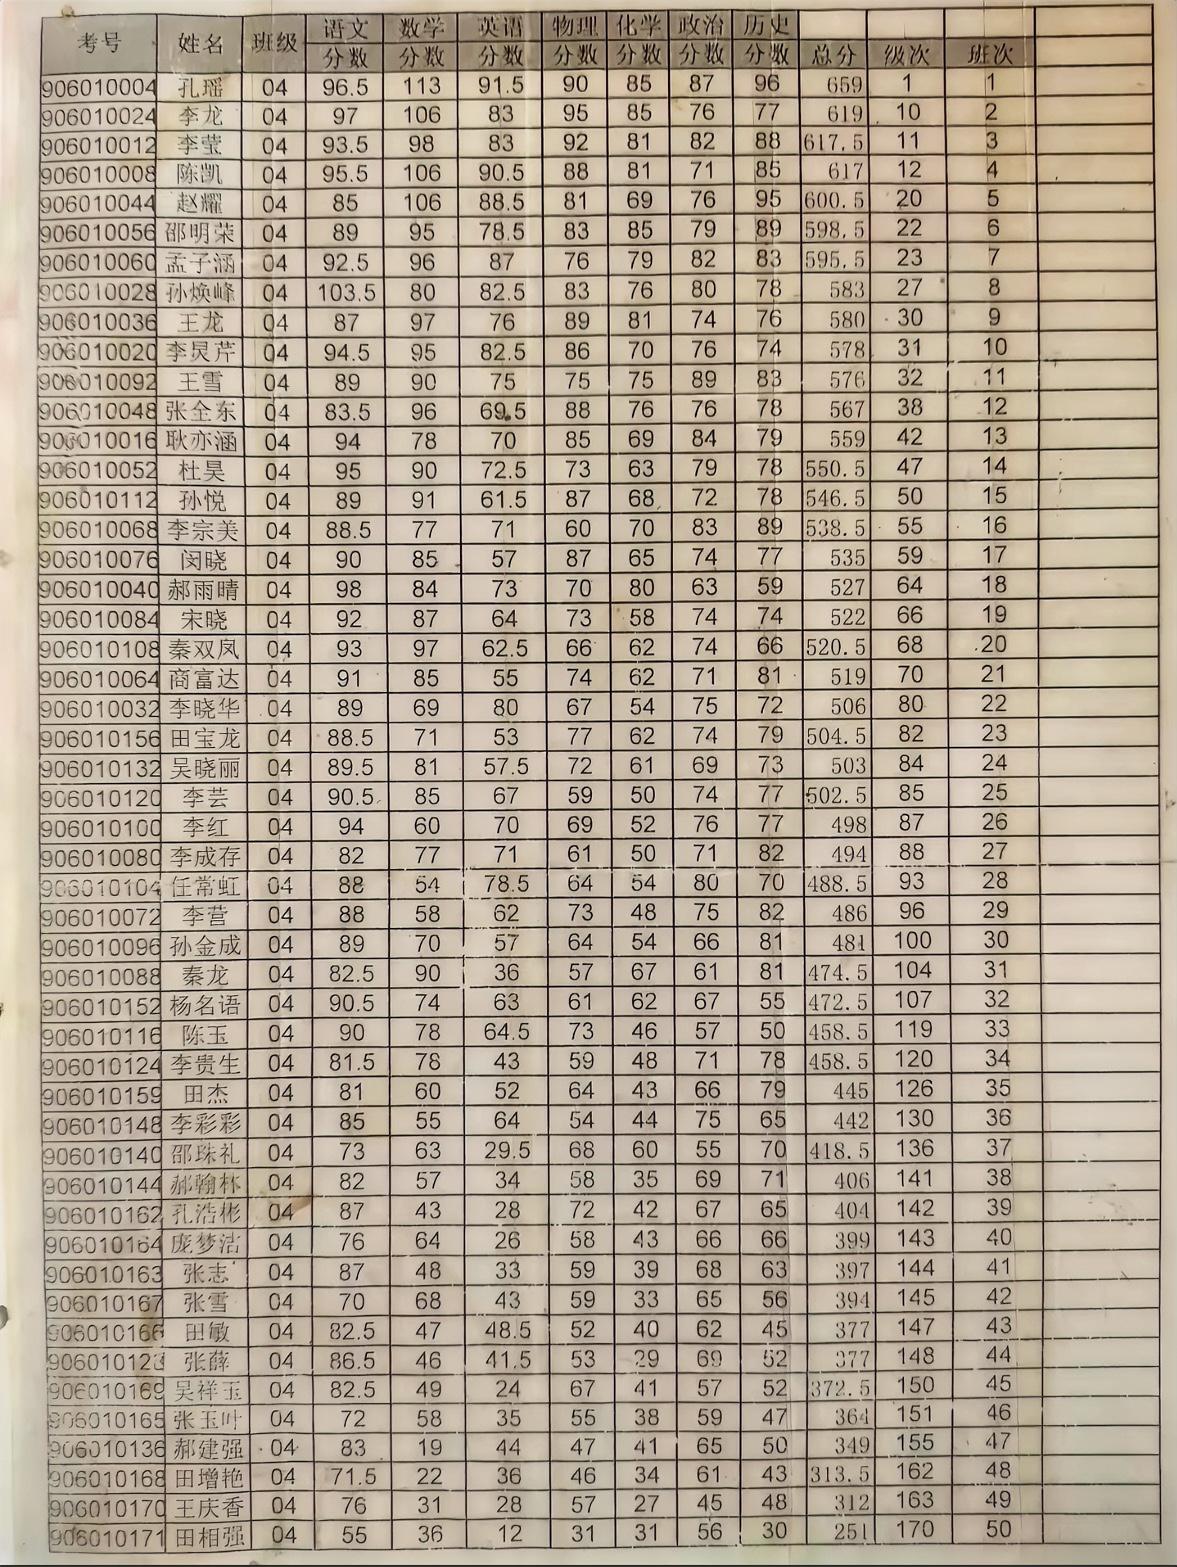 考号 姓名 班级 语文 数学 英语 物理 化学 政治 历史
分数 分数 分数 分数 分数 分数 分数 总分 级次 班次
906010004 孔瑶 04 96.5 113 91.5 90 85 87 96 659 1 1
906010024 李龙 04 97 106 83 95 85 76 77 619 10 2
906010012 李莹 04 93.5 98 83 92 81 82 88 617.5 11 3
906010008 陈凯 04 95.5 106 90.5 88 81 71 85 617 12 4
906010044 赵耀 04 85 106 88.5 81 69 76 95 600.5 20 5
906010056 邵明荣 04 89 95 78.5 83 85 79 89 598.5 22 6
906010060 孟子涵 04 92.5 96 87 76 79 82 83 595.5 23 7
906010028 孙焕峰 04 103.5 80 82.5 83 76 80 78 583 27 8
906010036 王龙 04 87 97 76 89 81 74 76 580 30 9
906010020 李炅芹 04 94.5 95 82.5 86 70 76 74 578 31 10
906010092 王雪 04 89 90 75 75 75 89 83 576 32 11
906010048 张全东 04 83.5 96 69.5 88 76 76 78 567 38 12
906010016 耿亦涵 04 94 78 70 85 69 84 79 559 42 13
906010052 杜昊 04 95 90 72.5 73 63 79 78 550.5 47 14
906010112 孙悦 04 89 91 61.5 87 68 72 78 546.5 50 15
906010068 李宗美 04 88.5 77 71 60 70 83 89 538.5 55 16
906010076 闵晓 04 90 85 57 87 65 74 77 535 59 17
906010040 郝雨晴 04 98 84 73 70 80 63 59 527 64 18
906010084 宋晓 04 92 87 64 73 58 74 74 522 66 19
906010108 秦双凤 04 93 97 62.5 66 62 74 66 520.5 68 20
906010064 商富达 04 91 85 55 74 62 71 81 519 70 21
906010032 李晓华 04 89 69 80 67 54 75 72 506 80 22
906010156 田宝龙 04 88.5 71 53 77 62 74 79 504.5 82 23
906010132 吴晓丽 04 89.5 81 57.5 72 61 69 73 503 84 24
906010120 李芸 04 90.5 85 67 59 50 74 77 502.5 85 25
906010100 李红 04 94 60 70 69 52 76 77 498 87 26
906010080 李成存 04 82 77 71 61 50 71 82 494 88 27
906010104 任常虹 04 88 54 78.5 64 54 80 70 488.5 93 28
906010072 李营 04 88 58 62 73 48 75 82 486 96 29
906010096 孙金成 04 89 70 57 64 54 66 81 481 100 30
906010088 秦龙 04 82.5 90 36 57 67 61 81 474.5 104 31
906010152 杨名语 04 90.5 74 63 61 62 67 55 472.5 107 32
906010116 陈玉 04 90 78 64.5 73 46 57 50 458.5 119 33
906010124 李贵生 04 81.5 78 43 59 48 71 78 458.5 120 34
906010159 田杰 04 81 60 52 64 43 66 79 445 126 35
906010148 李彩彩 04 85 55 64 54 44 75 65 442 130 36
906010140 邵珠礼 04 73 63 29.5 68 60 55 70 418.5 136 37
906010144 郝翰林 04 82 57 34 58 35 69 71 406 141 38
906010162 孔浩彬 04 87 43 28 72 42 67 65 404 142 39
906010164 庞梦洁 04 76 64 26 58 43 66 66 399 143 40
906010163 张志 04 87 48 33 59 39 68 63 397 144 41
906010167 张雪 04 70 68 43 59 33 65 56 394 145 42
906010166 田敏 04 82.5 47 48.5 52 40 62 45 377 147 43
906010123 张薛 04 86.5 46 41.5 53 29 69 52 377 148 44
906010169 吴祥玉 04 82.5 49 24 67 41 57 52 372.5 150 45
906010165 张玉叶 04 72 58 35 55 38 59 47 364 151 46
906010136 郝建强 04 83 19 44 47 41 65 50 349 155 47
906010168 田增艳 04 71.5 22 36 46 34 61 43 313.5 162 48
906010170 王庆香 04 76 31 28 57 27 45 48 312 163 49
906010171 田相强 04 55 36 12 31 31 56 30 251 170 50